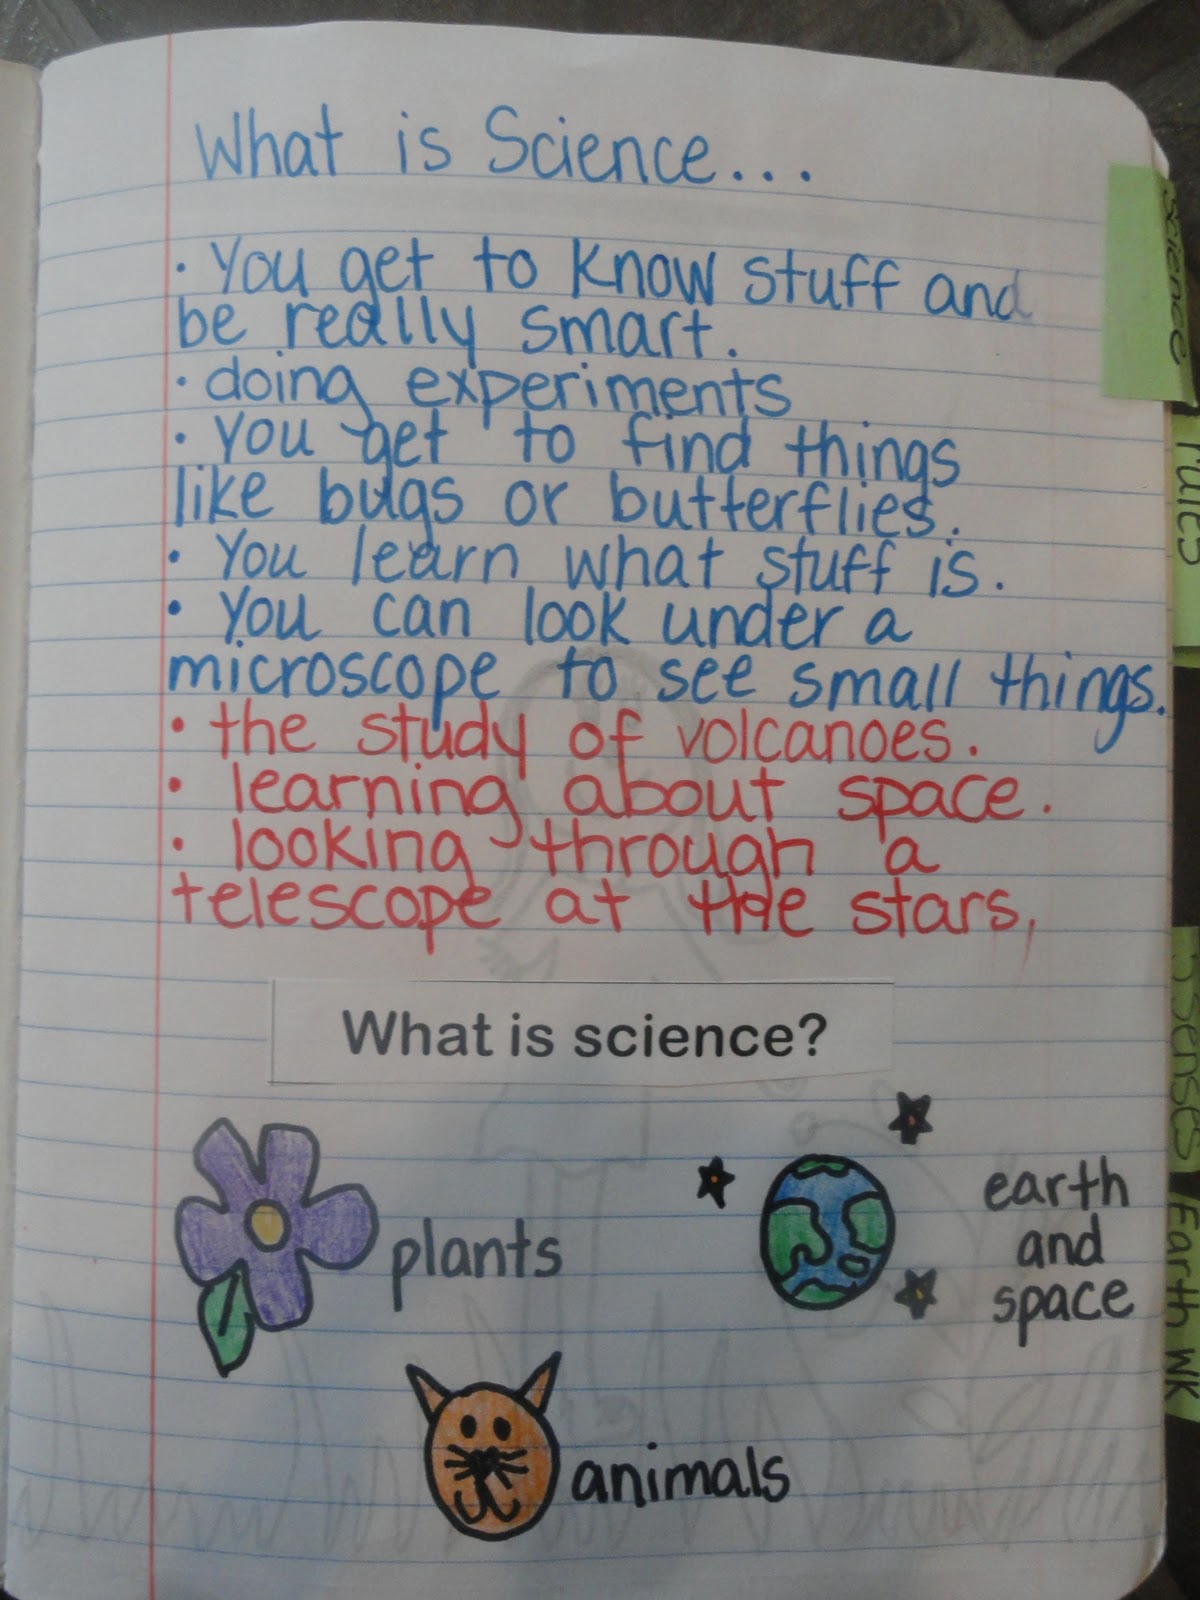 What is Science...
• You get to know stuff and
be really smart.
• doing experiments
• You get to find things
like bugs or butterflies.
• You learn what stuff is.
• You can look under a
microscope to see small things.
• the study of volcanoes.
• learning about space.
• looking through a
telescope at the stars,
What is science?
plants
earth
and
space
animals
Science
rules
5 senses
Earth WK